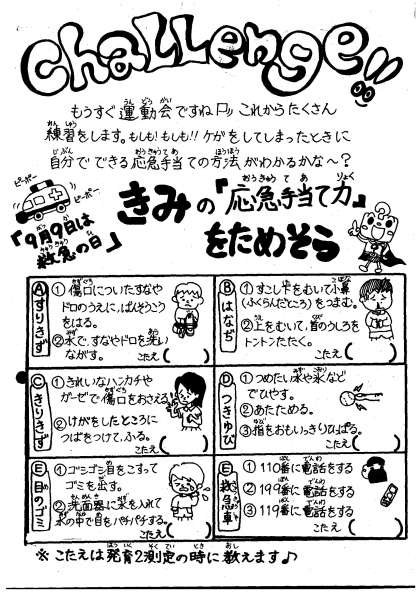 challenge!!
もうすぐ運動会ですね これからたくさん
練習をします。もしも!もしも!!ケガをしてしまったときに
自分でできる応急手当ての方法がわかるかな〜?
ピーポー
ピーポー
「9月9日は
救急の日」
きみの「応急手当て力」
をためそう
Ⓐすりきず
①傷口についたすなや
ドロのうえに、ばんそうこう
をはる。
②水で、すなやドロを洗い
ながす。
こたえ( )
Ⓑはなぢ
①すこし下をむいて小鼻
(ふくらんだところ)をつまむ。
②上をむいて、首のうしろを
トントンたたく。
こたえ( )
Ⓒきりきず
①きれいなハンカチや
ガーゼで傷口をおさえる
②けがをしたところに
つばをつけて、ふる。
こたえ( )
Ⓓつきゆび
①つめたい水や氷など
でひやす。
②あたためる。
③指をおもいっきりひっぱる。
こたえ( )
Ⓔ目のゴミ
①ゴシゴシ目をこすって
ゴミを出す。
②洗面器に水を入れて
水の中で目をパチパチする。
こたえ( )
Ⓔ救急車
①110番に電話をする
②199番に電話をする
③119番に電話をする
こたえ( )
※こたえは発育2測定の時に教えます♪